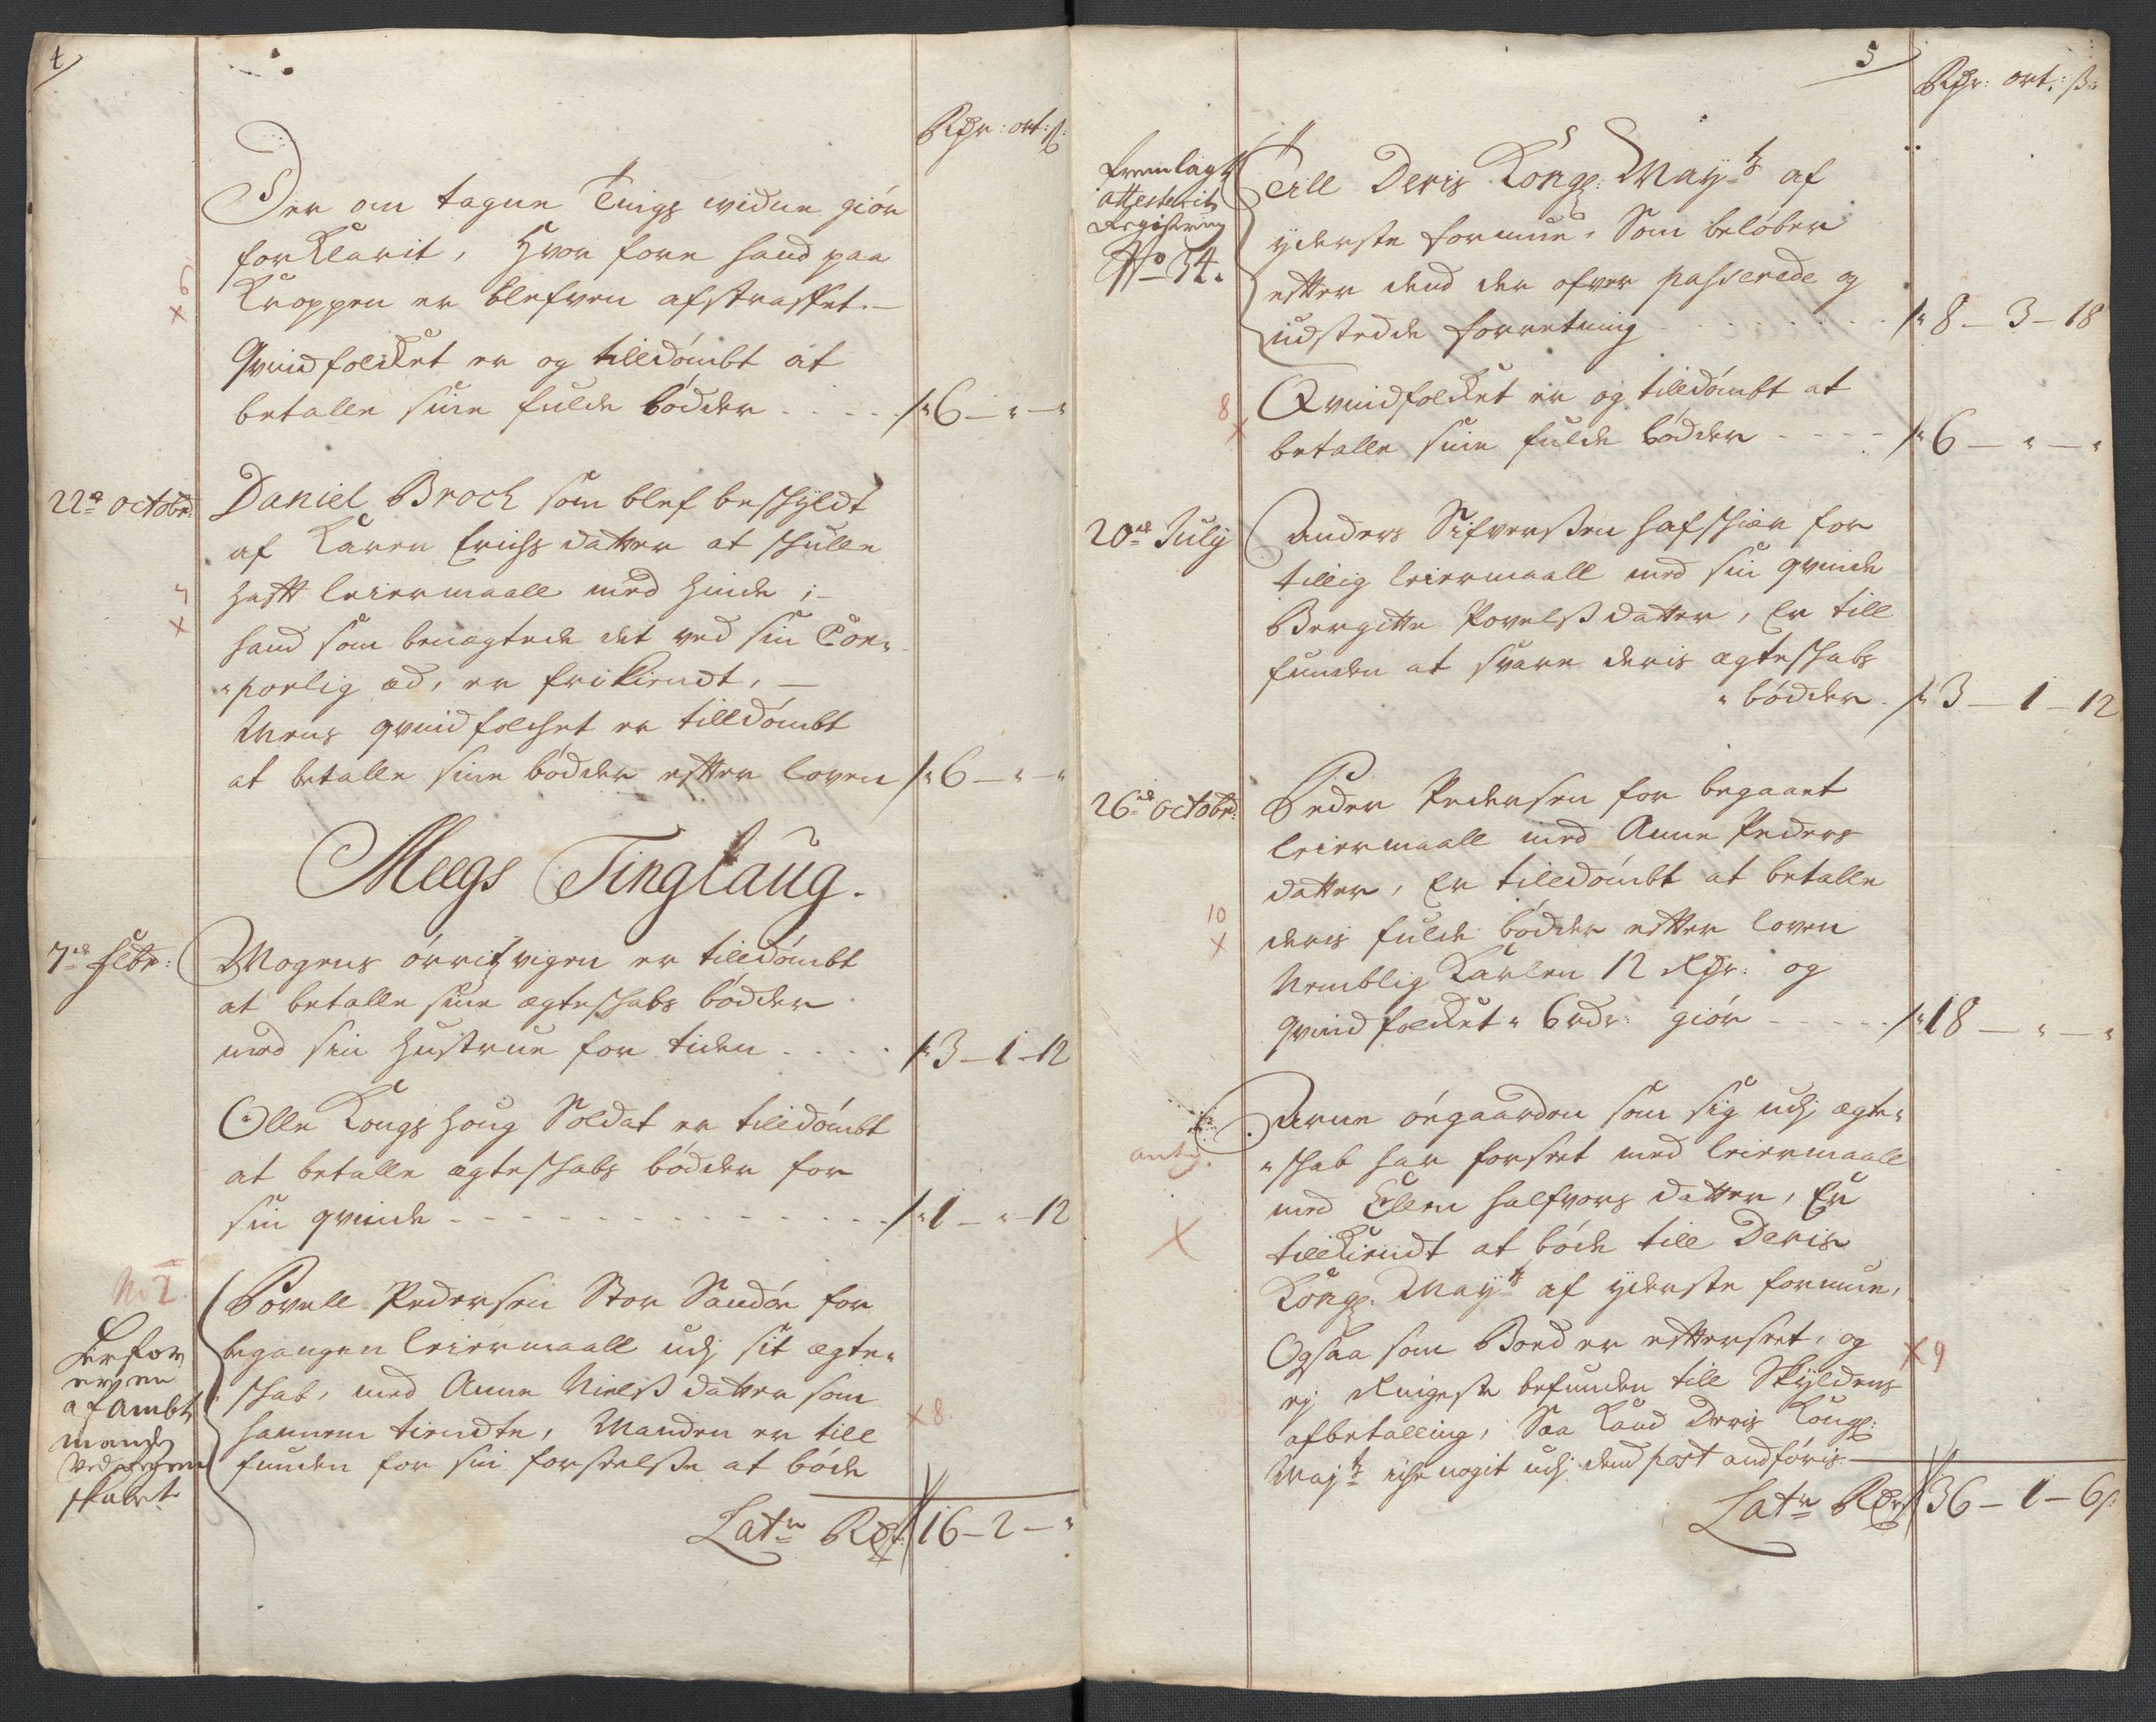 4
Rdr: ort: ß:
Der om tagne Tings widne giör
forklarit, Hvor fore hand paa
Kroppen er blefven afstraffet. —
x 6
Qvindfolcket er og tilldömbt at
betalle sine fulde bödder - - - - - 6 — " — "
22de Octobr:
Daniel Broch som blef beschyldt
af Karen Erichs datter at schulle
hafft leiermaall med hinde;
x 7
hand som benegtede det ved sin Cor„
„porlig æd, er frikiendt, —
Mens qvindfolchet er tilldömbt
at betalle sine bödder effter loven 6 — " — "
Meegs Tinglaug.
7de
Mogens örritzvigen er tilldömbt
at betalle sine ægteschabs bödder
med sin Hustrue for tiden - - - - 3 — 1 — 12
Olle Kongshoug Soldat er tilldömbt
at betalle ægteschabs bödder for
sin qvinde - - - - - - - - - 1 — " — 12
No 2.
Povell Pedersen Stor Sandör for
begangen leiermaall udj sit ægte„
schab, med Anne Nielß datter som
hannem tiendte, Manden er till
x 8
funden for sin forseelße at böde
Herfor
erven
af ambt
mand
ved
skabet
Latr Rdr 16 — 2 — "
5
Rdr: ort: ß:
fremlagt
attesterit
Registering
No 34.
Till Deris Kongl: Mayts af
yderste formue, Som belöber
effter dend der ofver passerede og
udstedde forretning - - - - - 8 — 3 — 18
8
x
Qvindfolcket er og tilldömbt at
betalle sine fulde bödder - - - - 6 — " — "
20de July
Anders Sifverßen hafschier for
tillig leiermaall med sin qvinde
Bergitte Povelß datter, Er till
funden at svare deris ægteschabs
„ bödder - 3 — 1 — 12
26de Octobr:
Peder Pedersen for begaaet
leiermaall med Anne Peders
datter, Er tilldömbt at betalle
10
x
deris fulde bödder effter loven
Nemblig Karlen 12 Rdr: og
qvindfolcket " 6 rdr: giör - - - - 18 — " — "
Arne öegaarden som sig udj ægte„
„schab har forseet med leiermaall
x
med Ellen halfvors datter, Er
tillkiendt at böde till Deris
Kongl: Mayts af yderste formue,
Ogsaa som Boed er effterseet, og
x 9
ej Ringeste befunden till Skyldens
afbetalling, Saa Kand Deris Kongl:
Majts iche nogit udj dend post andföris
Latr Rdr 36 — 1 — 6 ß: